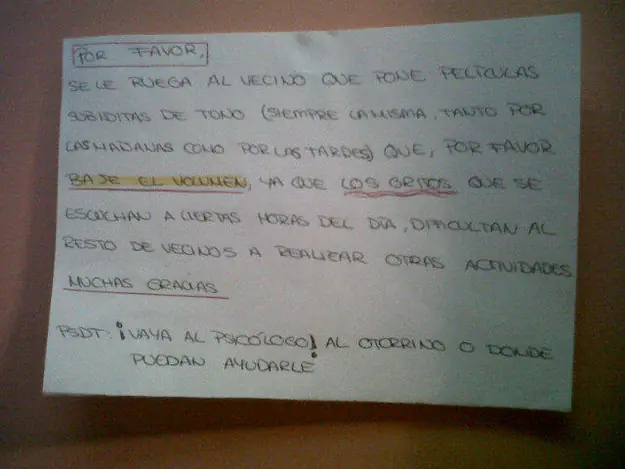 POR FAVOR,
SE LE RUEGA AL VECINO QUE PONE PELÍCULAS
SUBIDITAS DE TONO (SIEMPRE LA MISMA, TANTO POR
LAS MAÑANAS COMO POR LAS TARDES) QUE, POR FAVOR
BAJE EL VOLUMEN, YA QUE LOS GRITOS QUE SE
ESCUCHAN A CIERTAS HORAS DEL DÍA, DIFICULTAN AL
RESTO DE VECINOS A REALIZAR OTRAS ACTIVIDADES
MUCHAS GRACIAS
PSDT: ¡VAYA AL PSICÓLOGO! AL OTORRINO O DONDE
PUEDAN AYUDARLE!